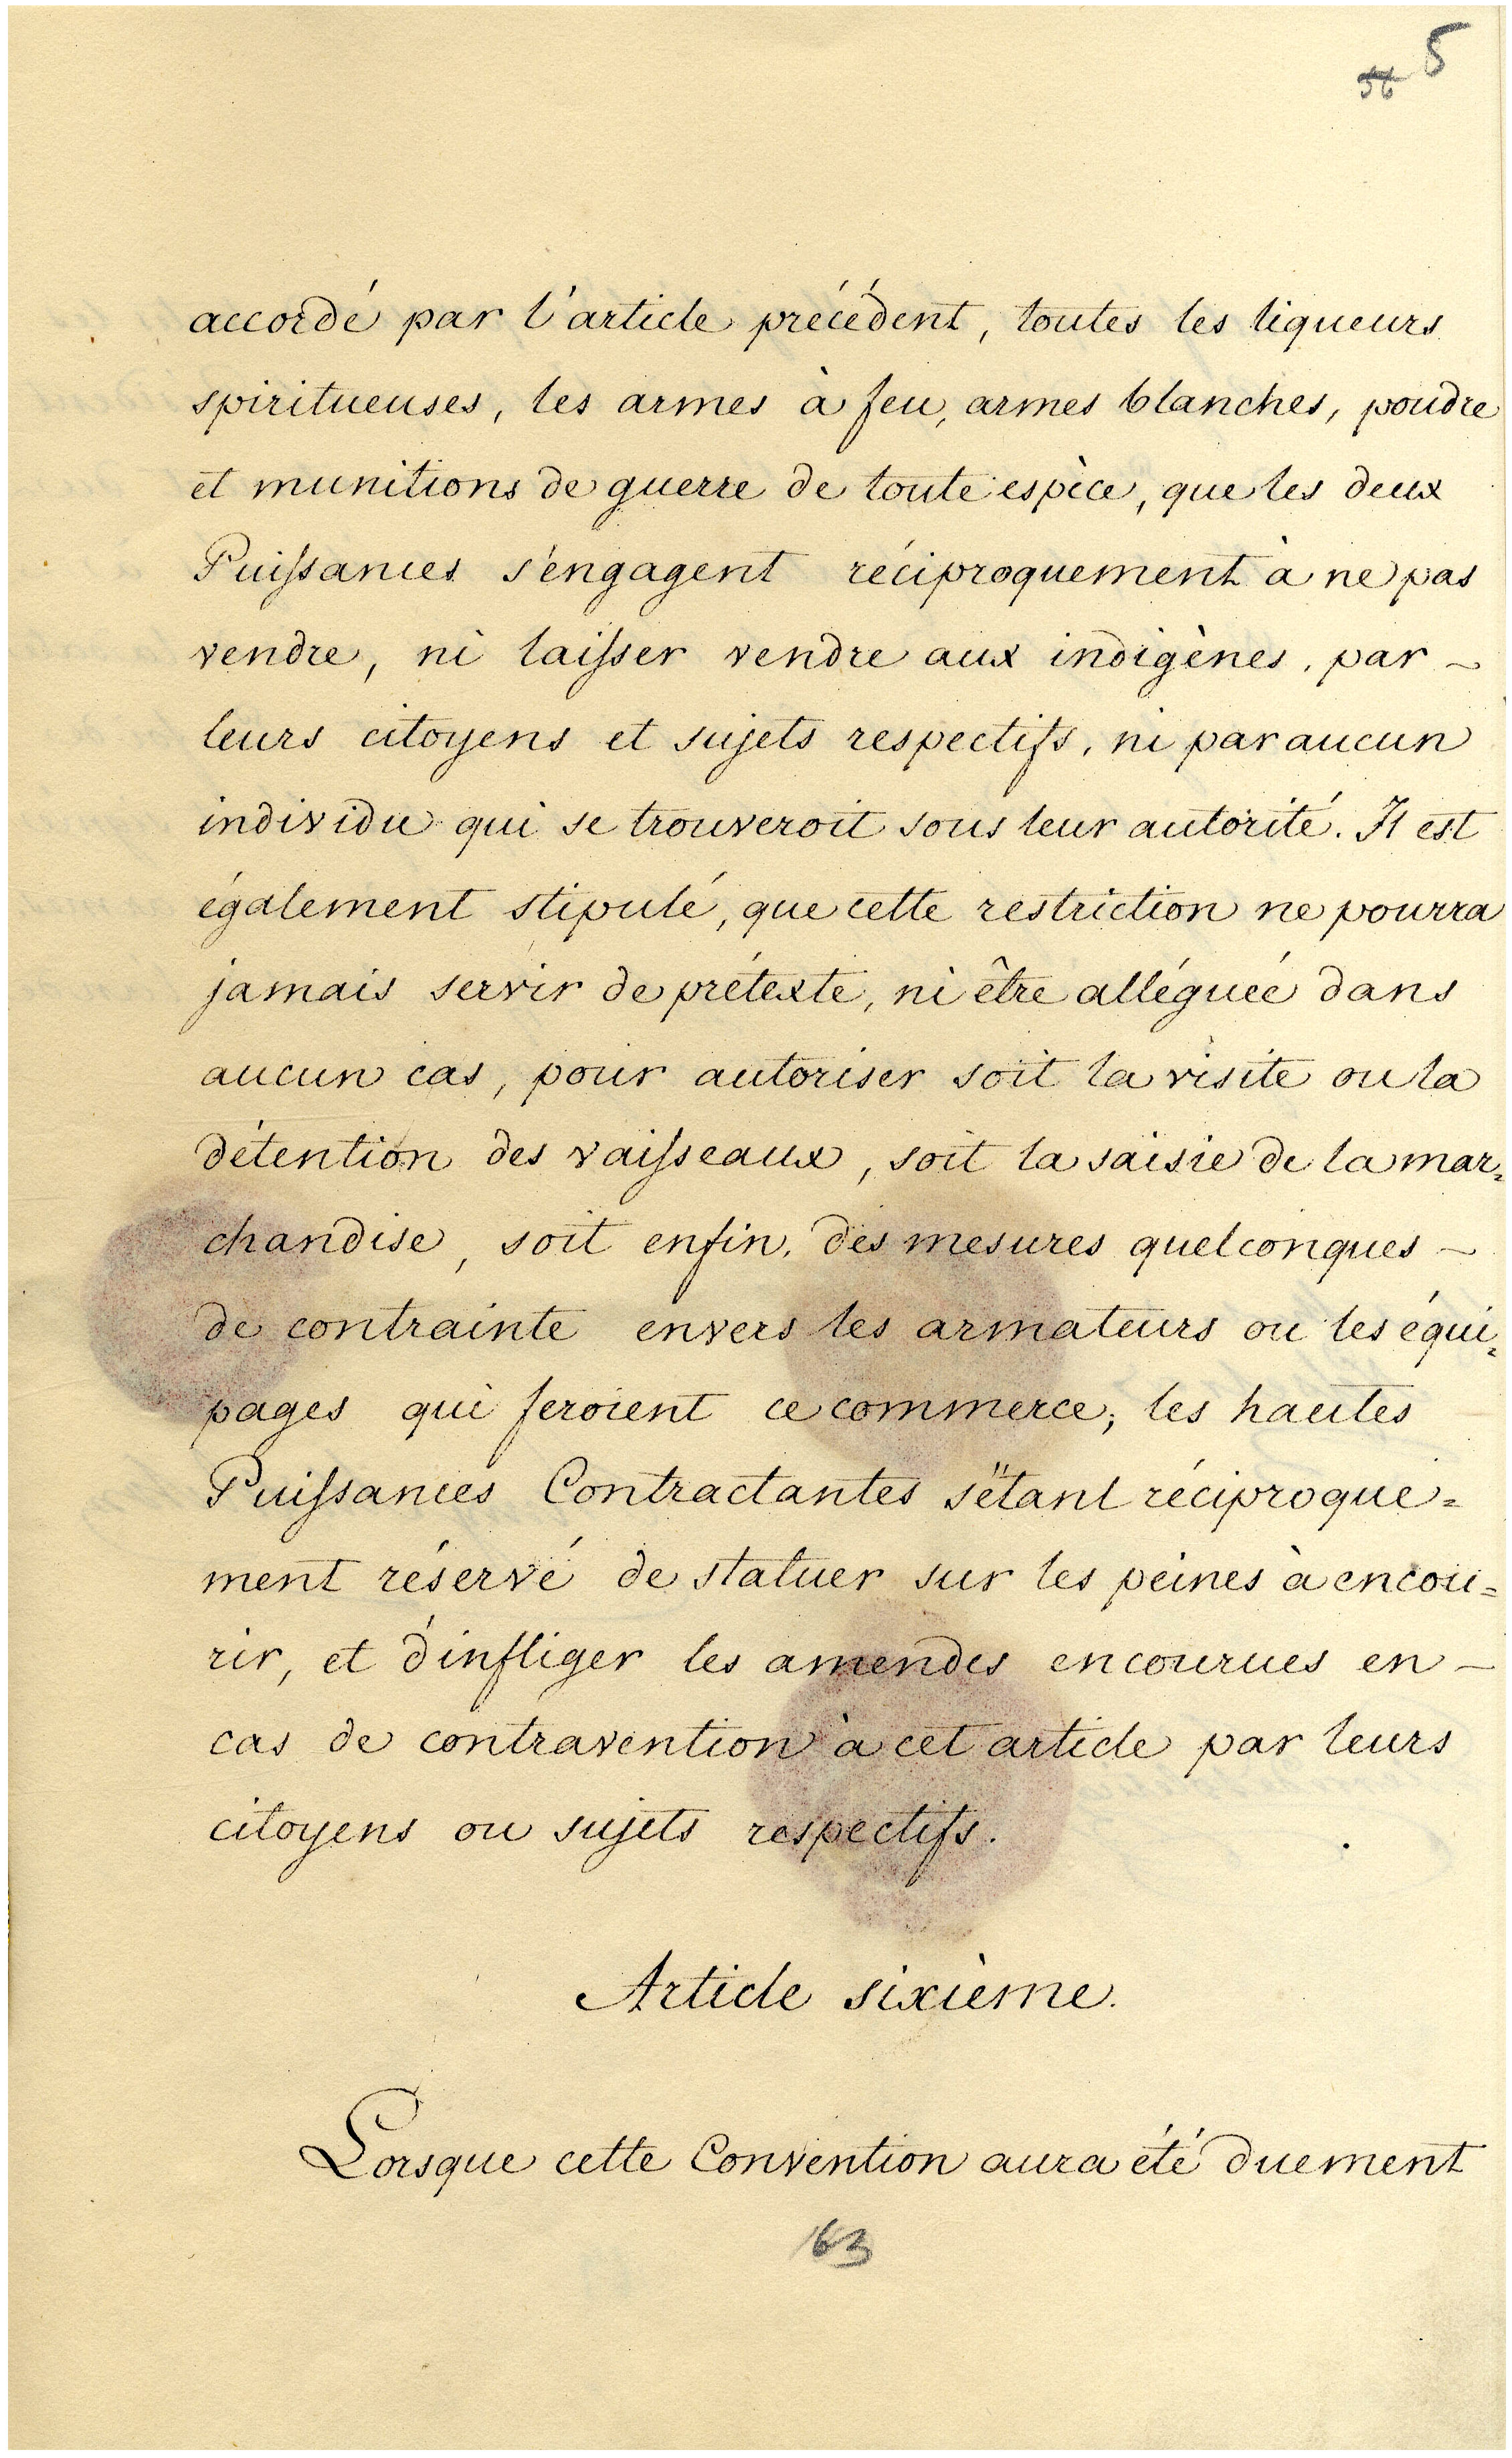 5
56
accordé par l'article précédent, toutes les liqueurs
spiritueuses, les armes à feu, armes blanches, poudre
et munitions de guerre de toute espèce, que les deux
Puissances s'engagent réciproquement à ne pas
vendre, ni laisser vendre aux indigènes, par -
leurs citoyens et sujets respectifs, ni par aucun
individu qui se trouveroit sous leur autorité. Il est
également stipulé, que cette restriction ne pourra
jamais servir de prétexte, ni être alléguée dans
aucun cas, pour autoriser soit la visite ou la
détention des vaisseaux, soit la saisie de la mar=
chandise, soit enfin, des mesures quelconques -
de contrainte envers les armateurs ou les équi=
pages qui feroient ce commerce; les hautes
Puissances Contractantes s'étant réciproque=
ment réservé de statuer sur les peines à encou=
rir, et d'infliger les amendes encourues en -
cas de contravention à cet article par leurs
citoyens ou sujets respectifs.
Article sixième.
Lorsque cette Convention aura été duement
163